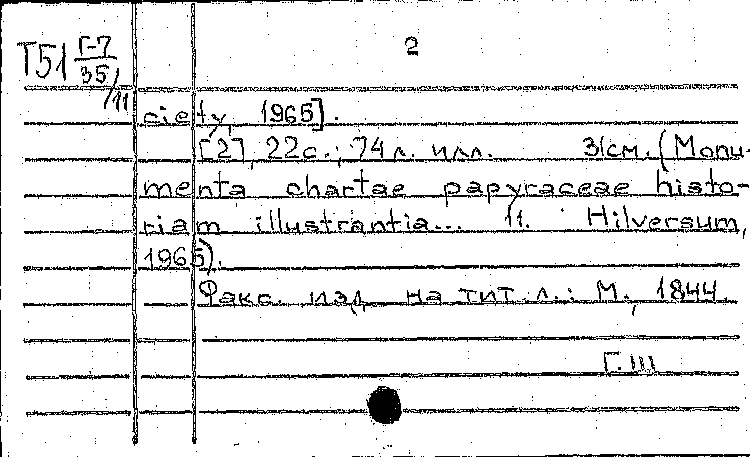 Т51 Г-7/35/11
2
ciety, 1965].
[2], 22с.; 74 л. илл. 31см. (Monu-
menta chartae papyraceae histo-
riam illustrantia... 11. Hilversum,
1965).
Факс. изд. на тит. л.: М., 1844.
Г. III